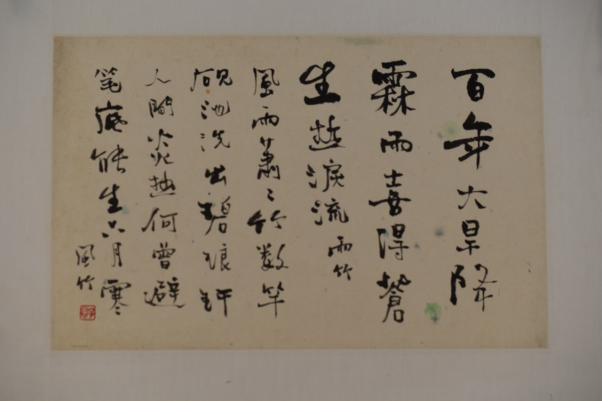 百年大旱降
霖雨喜得蒼
生熱淚流 雨竹
風雨蕭〻竹數竿
硯池洗出碧琅玕
人間炎熱何曾避
笔底能生六月寒
風竹